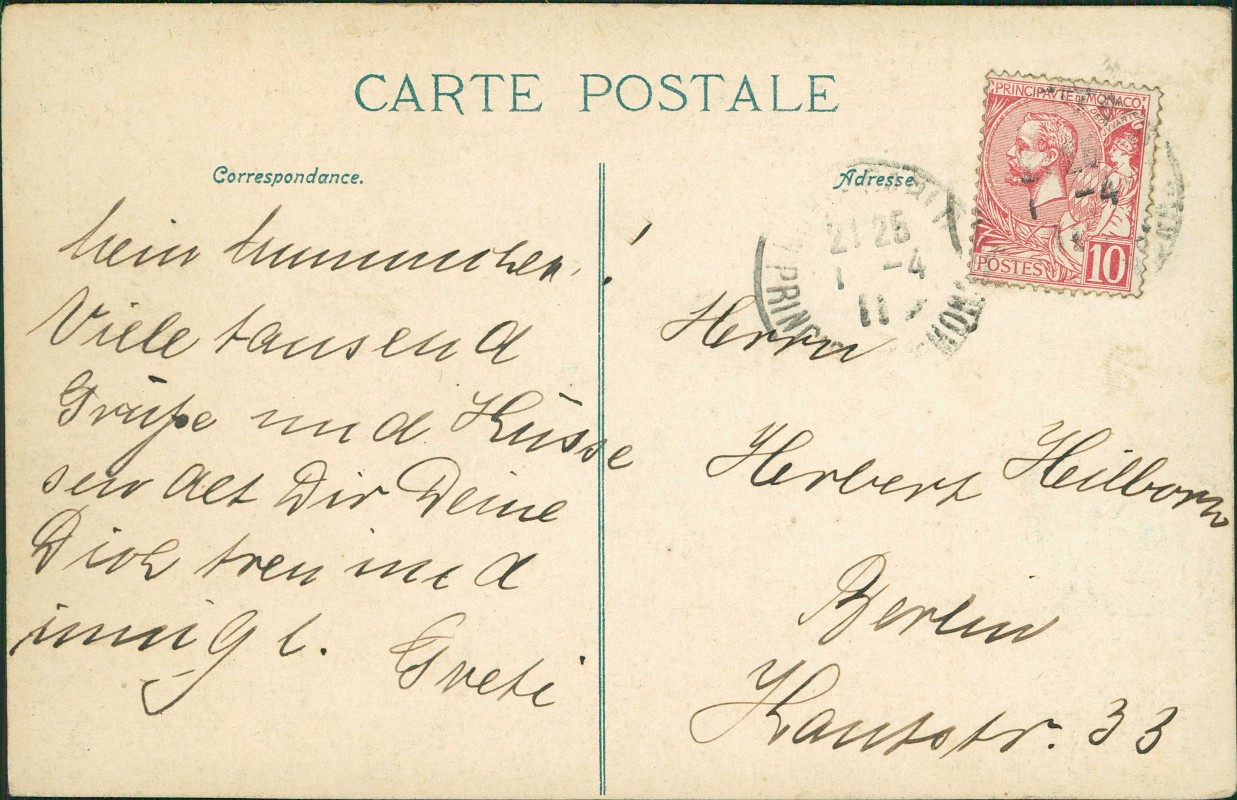 CARTE POSTALE
Correspondance.
Mein Mummchen!
Viele tausend
Grüße und Küsse
sen det Dir Deine
Dich treu und
innig l.
Greti
Adresse
PRINCIPAUTÉ DE MONACO
POSTES 10
21 25
1 -4
11
Herrn
Herbert Heilborn
Berlin
Kantstr. 33